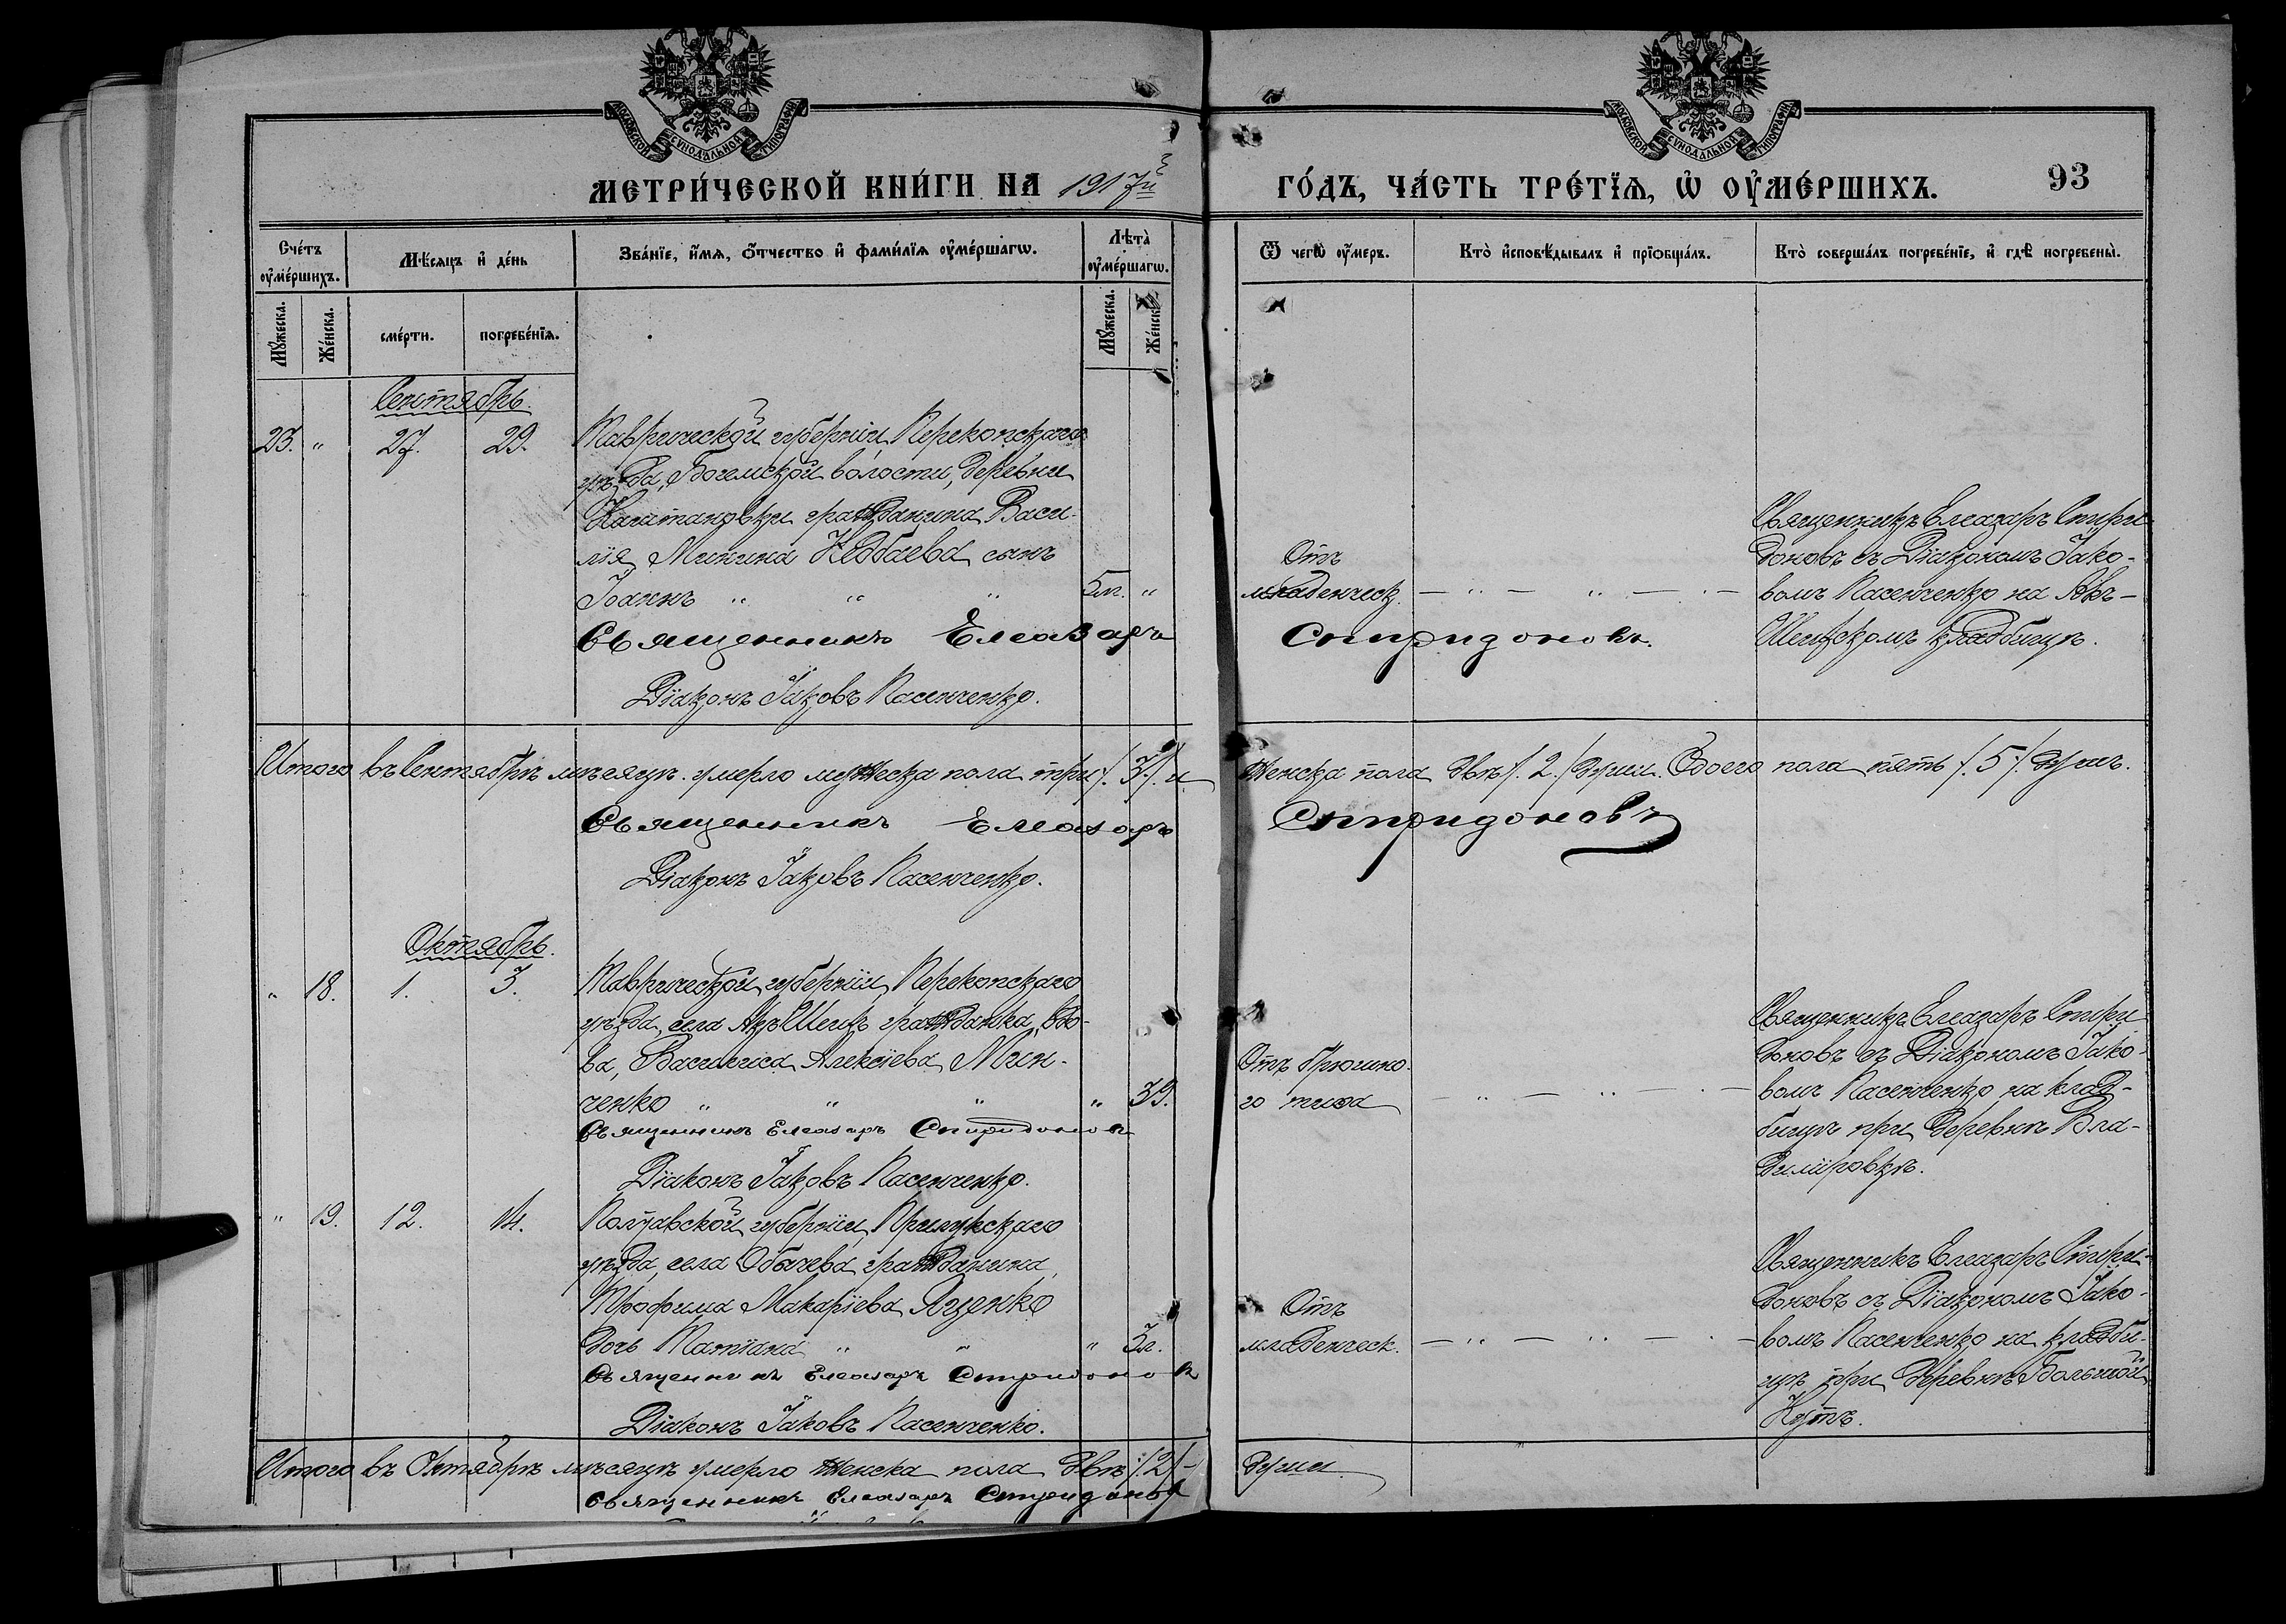 МОСКОВСКОЙ СУНОДАЛЬНОЙ ТИПОГРАФІИ
МОСКОВСКОЙ СУНОДАЛЬНОЙ ТИПОГРАФІИ
МЕТРИ́ЧЕСКОЙ КНИ́ГИ НА 1917й
ГО́ДЪ, ЧА́СТЬ ТРЕ́ТЇѦ, Ѡ҆ ОУ҆МЕ́РШИХЪ.
93
Сче́тъ оу҆ме́ршихъ.
Мѣ́сѧцъ и҆ де́нь
Зва́нїе, и҆́мѧ, ѻ҆́тчество и҆ фами́лїѧ оу҆ме́ршагѡ.
Лѣта̀ оу҆ме́ршагѡ.
Ѿ чегѡ̀ оу҆́меръ.
Кто̀ и҆сповѣ́дывалъ и҆ прїѡбща́лъ.
Кто̀ соверша́лъ погребе́нїе, и҆ гдѣ̀ погребены̀.
Мꙋ́жеска.
Же́нска.
сме́рти.
погребе́нїѧ.
Мꙋ́жеска.
Же́нска.
Сентябрь.
23. „ 27. 29.
Таврической губерніи, Перекопскаго
уѣзда, Богемской волости, деревни
Каштановки гражданина Васи-
лія Минина Недбаева сынъ
Іоаннъ „ „ „ 5м. „
Священникъ Елеазаръ Спиридоновъ.
Діаконъ Іаковъ Пасенченко.
Отъ
младенческ. — „ — „ — „ —
Священникъ Елеазаръ Спири
доновъ съ Діакономъ Іако-
вомъ Пасенченко на Акъ-
Шеихскомъ кладбищѣ.
Итого въ Сентябрѣ мѣсяцѣ умерло мужеска пола три /.3./ и женска пола двѣ /.2./ души. Обоего пола пять /.5/. душъ.
Священникъ Елеазаръ Спиридоновъ
Діаконъ Іаковъ Пасенченко.
Октябрь.
„ 18. 1. 3.
Таврической губерніи, Перекопскаго
уѣзда, села Акъ-Шеихъ гражданка, вдо-
ва, Василиса Алексіева Мин-
ченко „ „ „ „ 39.
Священникъ Елеазаръ Спиридоновъ
Діаконъ Іаковъ Пасенченко.
Отъ брюшно-
го тифа — „ — „ — „ —
Священникъ Елеазаръ Спири
доновъ съ Діакономъ Іако-
вомъ Пасенченко на клад-
бищѣ при деревнѣ Вла-
диміровкѣ.
„ 19. 12. 14.
Полтавской губерніи, Прилукскаго
уѣзда, села Обычева гражданина,
Трофима Макаріева Яценко
дочь Татіана „ „ „ 3г.
Священникъ Елеазаръ Спиридоновъ
Діаконъ Іаковъ Пасенченко.
Отъ
младенческ. — „ — „ — „ —
Священникъ Елеазаръ Спири-
доновъ съ Діакономъ Іако-
вомъ Пасенченко на кладби-
щѣ при деревнѣ Большой
Кутъ.
Итого въ Октябрѣ мѣсяцѣ умерло женска пола двѣ /.2/- души.
Священникъ Елеазаръ Спиридоновъ